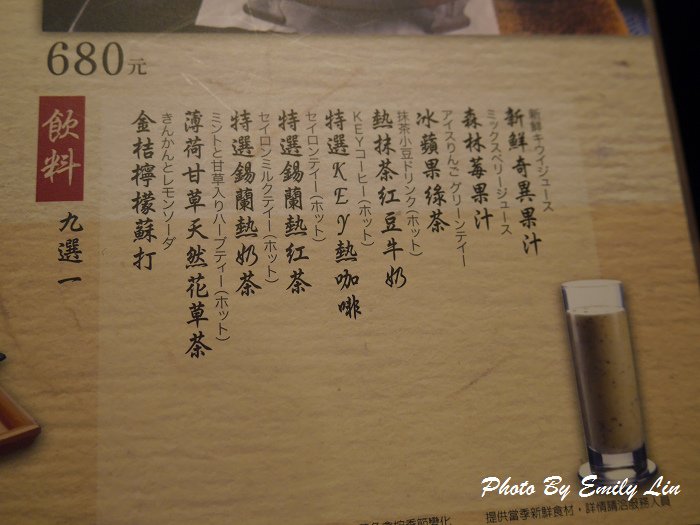 680元
飲料
九選一
新鮮キウイジュース
新鮮奇異果汁
ミックスベリージュース
森林莓果汁
アイスりんごグリーンティー
冰蘋果綠茶
抹茶小豆ドリンク(ホット)
熱抹茶紅豆牛奶
KEYコーヒー(ホット)
特選KEY熱咖啡
セイロンティー(ホット)
特選錫蘭熱紅茶
セイロンミルクティー(ホット)
特選錫蘭熱奶茶
ミントと甘草入りハーブティー(ホット)
薄荷甘草天然花草茶
きんかんとレモンソーダ
金桔檸檬蘇打
提供當季新鮮食材，詳情請洽服務人員
Photo By Emily Lin